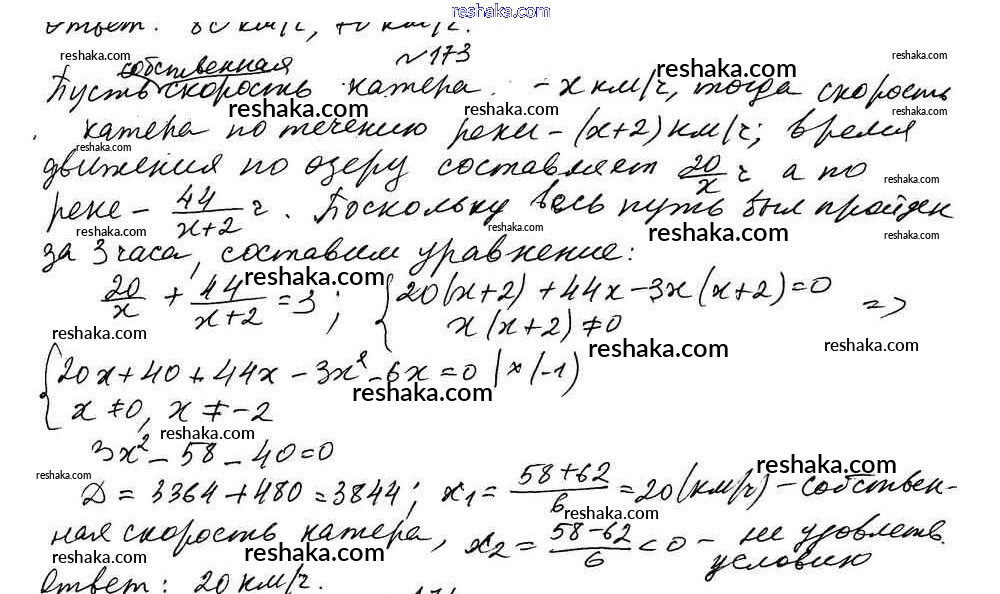 reshaka.com
Ответ: 80 км/ч, 70 км/ч.
reshaka.com №173 reshaka.com
собственная reshaka.com
Пусть скорость катера - x км/ч, тогда скорость
reshaka.com reshaka.com
катера по течению реки - (x+2) км/ч; время
reshaka.com
движения по озеру составляет 20/x ч а по
reshaka.com
реке - 44/(x+2) ч. Поскольку весь путь был пройден
reshaka.com reshaka.com reshaka.com reshaka.com
за 3 часа, составим уравнение:
reshaka.com
20/x + 44/(x+2) = 3; { 20(x+2) + 44x - 3x(x+2) = 0
x(x+2) ≠ 0 =>
reshaka.com reshaka.com reshaka.com
{ 20x + 40 + 44x - 3x² - 6x = 0 | × (-1)
reshaka.com
x ≠ 0, x ≠ -2
reshaka.com
3x² - 58 - 40 = 0
reshaka.com reshaka.com
Д = 3364 + 480 = 3844; x₁ = (58+62)/6 = 20 (км/ч) - собствен-
reshaka.com
ная скорость катера, x₂ = (58-62)/6 < 0 - не удовлетв.
условию
reshaka.com reshaka.com reshaka.com
Ответ: 20 км/ч.